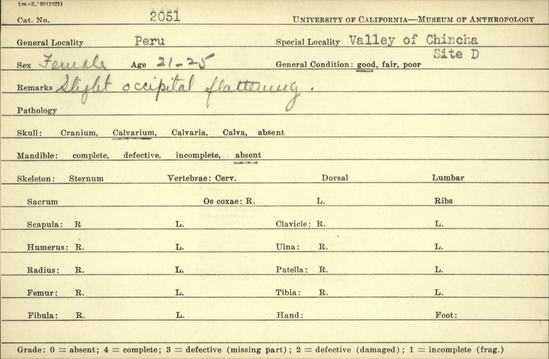 1m-2,'39(1021)
Cat. No. 2051 UNIVERSITY OF CALIFORNIA—MUSEUM OF ANTHROPOLOGY
General Locality Peru Special Locality Valley of Chincha
Site D
Sex Female Age 21-25 General Condition: good, fair, poor
Remarks Slight occipital flattening.
Pathology
Skull: Cranium, Calvarium, Calvaria, Calva, absent
Mandible: complete, defective, incomplete, absent
Skeleton: Sternum Vertebrae: Cerv. Dorsal Lumbar
Sacrum Os coxae: R. L. Ribs
Scapula: R L. Clavicle: R. L.
Humerus: R. L. Ulna: R. L.
Radius: R. L. Patella: R. L.
Femur: R. L. Tibia: R. L.
Fibula: R. L. Hand: Foot:
Grade: 0 = absent; 4 = complete; 3 = defective (missing part); 2 = defective (damaged); 1 = incomplete (frag.)